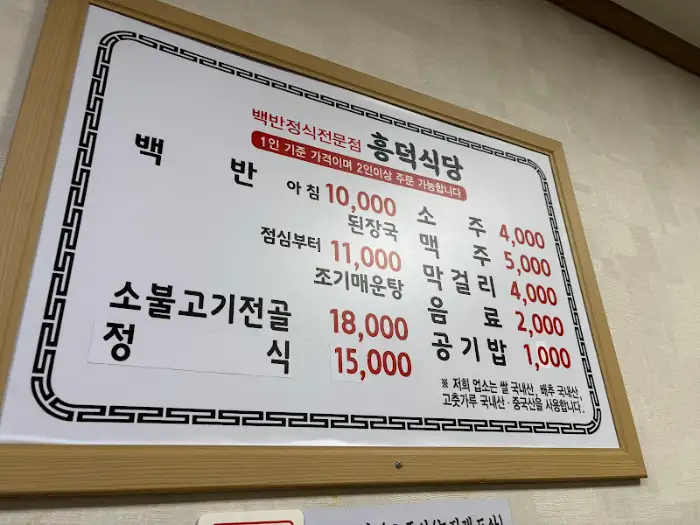 백반정식전문점 흥덕식당
1인 기준 가격이며 2인이상 주문 가능합니다
백 반 아침 10,000
된장국
점심부터 11,000
조기매운탕
소불고기전골 18,000
정 식 15,000
소 주 4,000
맥 주 5,000
막걸리 4,000
음 료 2,000
공기밥 1,000
※ 저희 업소는 쌀 국내산, 배추 국내산,
고춧가루 국내산·중국산을 사용합니다.